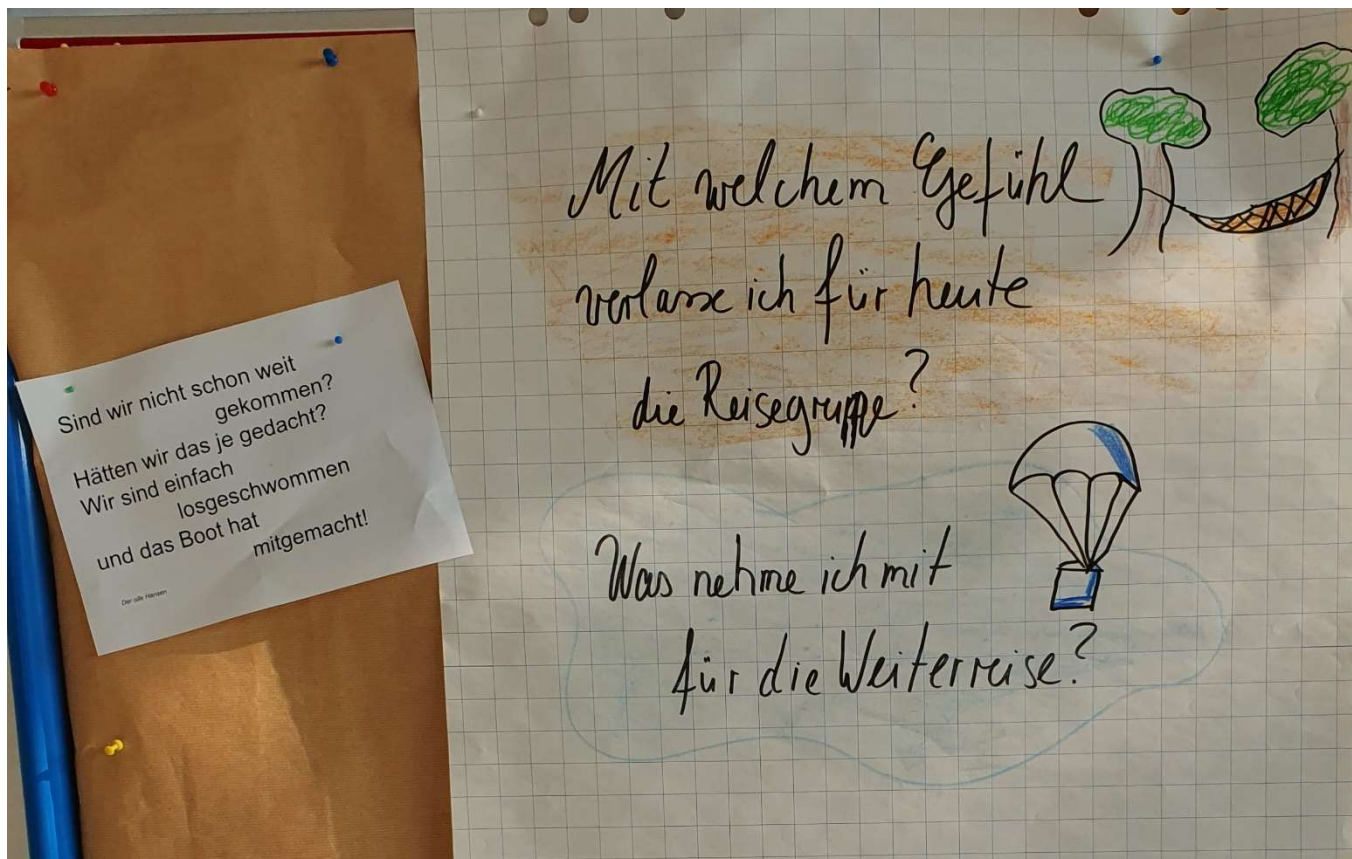 Sind wir nicht schon weit
gekommen?
Hätten wir das je gedacht?
Wir sind einfach
losgeschwommen
und das Boot hat
mitgemacht!
Der olle Hansen
Mit welchem Gefühl
verlasse ich für heute
die Reisegruppe?
Was nehme ich mit
für die Weiterreise?